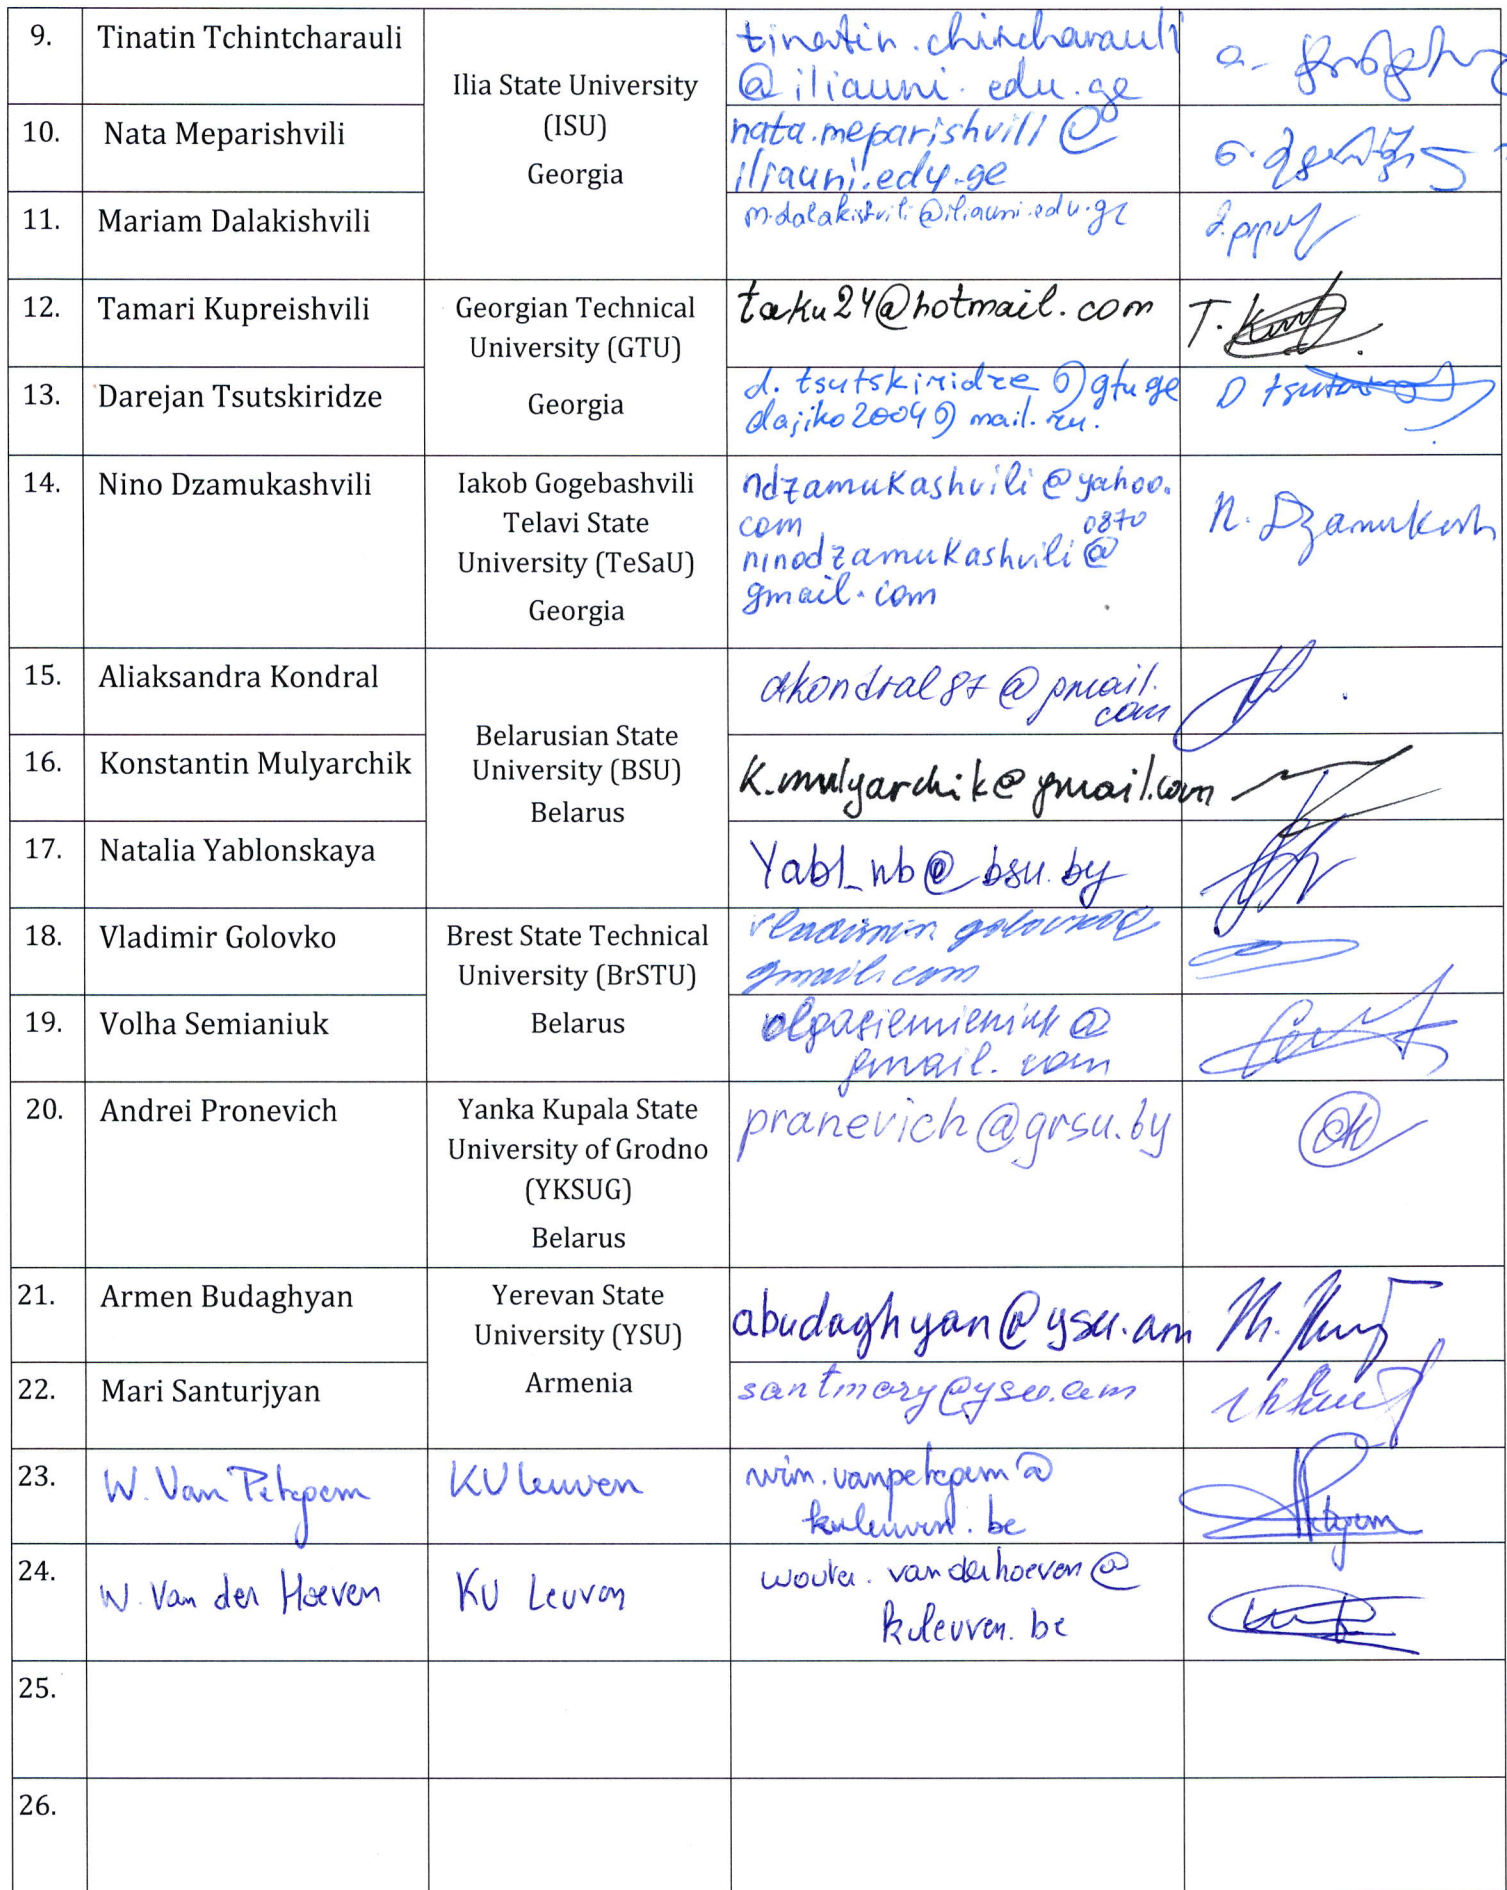 9. Tinatin Tchintcharauli
Ilia State University
(ISU)
Georgia
tinatin.chincharauli
@iliauni.edu.ge
10. Nata Meparishvili
nata.meparishvili@
iliauni.edu.ge
11. Mariam Dalakishvili
m.dalakishvili@iliauni.edu.ge
12. Tamari Kupreishvili
Georgian Technical
University (GTU)
Georgia
taku24@hotmail.com
T.
13. Darejan Tsutskiridze
d.tsutskiridze@gtu.ge
dajiko2004@mail.ru.
14. Nino Dzamukashvili
Iakob Gogebashvili
Telavi State
University (TeSaU)
Georgia
ndzamukashvili@yahoo.
com
0870
ninodzamukashvili@
gmail.com
N. Dzamukash
15. Aliaksandra Kondral
Belarusian State
University (BSU)
Belarus
akondral87@gmail.
com
16. Konstantin Mulyarchik
k.mulyarchik@gmail.com
17. Natalia Yablonskaya
Yabl_nb@bsu.by
18. Vladimir Golovko
Brest State Technical
University (BrSTU)
Belarus
vladimir.golovko@
gmail.com
19. Volha Semianiuk
olgasiemieniuk@
gmail.com
20. Andrei Pronevich
Yanka Kupala State
University of Grodno
(YKSUG)
Belarus
pranevich@grsu.by
21. Armen Budaghyan
Yerevan State
University (YSU)
Armenia
abudaghyan@ysu.am
22. Mari Santurjyan
santmary@ysu.am
23. W. Van Petegem
KU Leuven
wim.vanpetegem@
kuleuven.be
24. W. Van der Hoeven
KU Leuven
wouter.vanderhoeven@
kuleuven.be
25.
26.